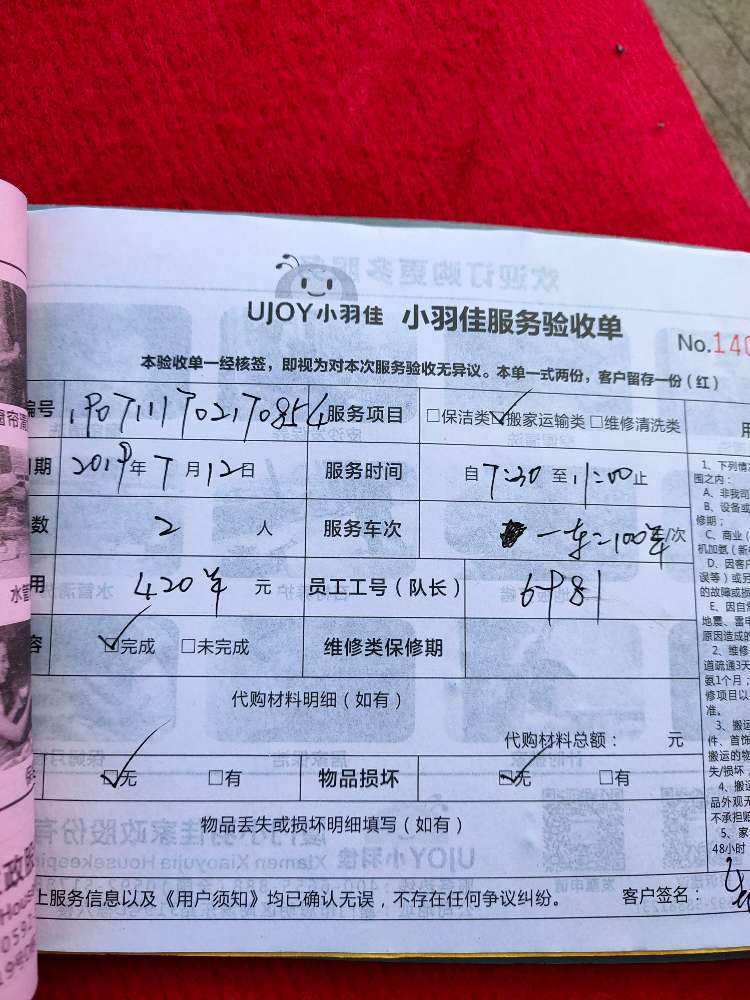 UJOY小羽佳 小羽佳服务验收单
No.140
本验收单一经核签，即视为对本次服务验收无异议。本单一式两份，客户留存一份（红）
编号 1907111702170854 服务项目 □保洁类☑搬家运输类□维修清洗类
期 2019年7月12日 服务时间 自7:30至11:00止
数 2人 服务车次 /次
用 420 元 员工工号（队长） 6981
容 ☑完成 □未完成 维修类保修期
代购材料明细（如有）
代购材料总额： 元
☑无 □有 物品损坏 ☑无 □有
物品丢失或损坏明细填写（如有）
上服务信息以及《用户须知》均已确认无误，不存在任何争议纠纷。 客户签名：
用
1、下列情
围之内：
A、非我司
B、设备或
修期；
C、商业（
机加氨（新
D、因客户
误等）或另
的故障或损
E、因自然
地震、雷电
原因造成的
2、维修
道疏通3天
氨1个月；
修项目以
准。
3、搬运
件、首饰
搬运的物
失/损坏
4、搬运
品外观无
不承担赔
5、家
48小时
水管